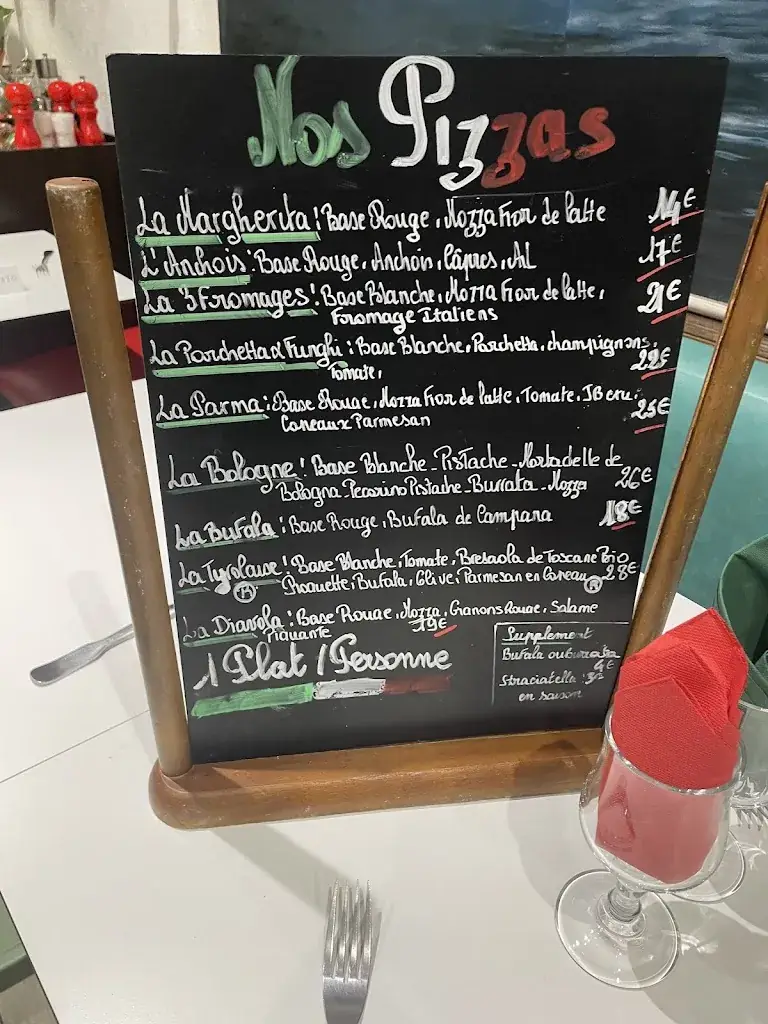 Nos Pizzas
La Margherita : Base Rouge, Mozza Fior de latte 14€
L'Anchois : Base Rouge, Anchois, Câpres, AIL 17€
La 3 Fromages : Base Blanche, Mozza Fior de latte, 21€
Fromage Italiens
La Porchetta & Funghi : Base Blanche, Porchetta, champignons, 22€
Tomate,
La Parma : Base Rouge, Mozza Fior de latte, Tomate, JB cru, 25€
Copeaux Parmesan
La Bologne : Base Blanche - Pistache - Mortadelle de
Bologna - Pecorino Pistache - Burrata - Mozza 26€
La Bufala : Base Rouge, Bufala de Campana 18€
La Tyrolause : Base Blanche, Tomate, Bresaola de Toscane Bio
Roquette, Bufala, Olive, Parmesan en Copeau R 28€
R
La Diavola : Base Rouge, Mozza, Oignons Rouge, Salame
Piquante 19€
1 Plat / Personne
Supplement
Bufala ou burrata
4€
Straciatella : 3€
en saison